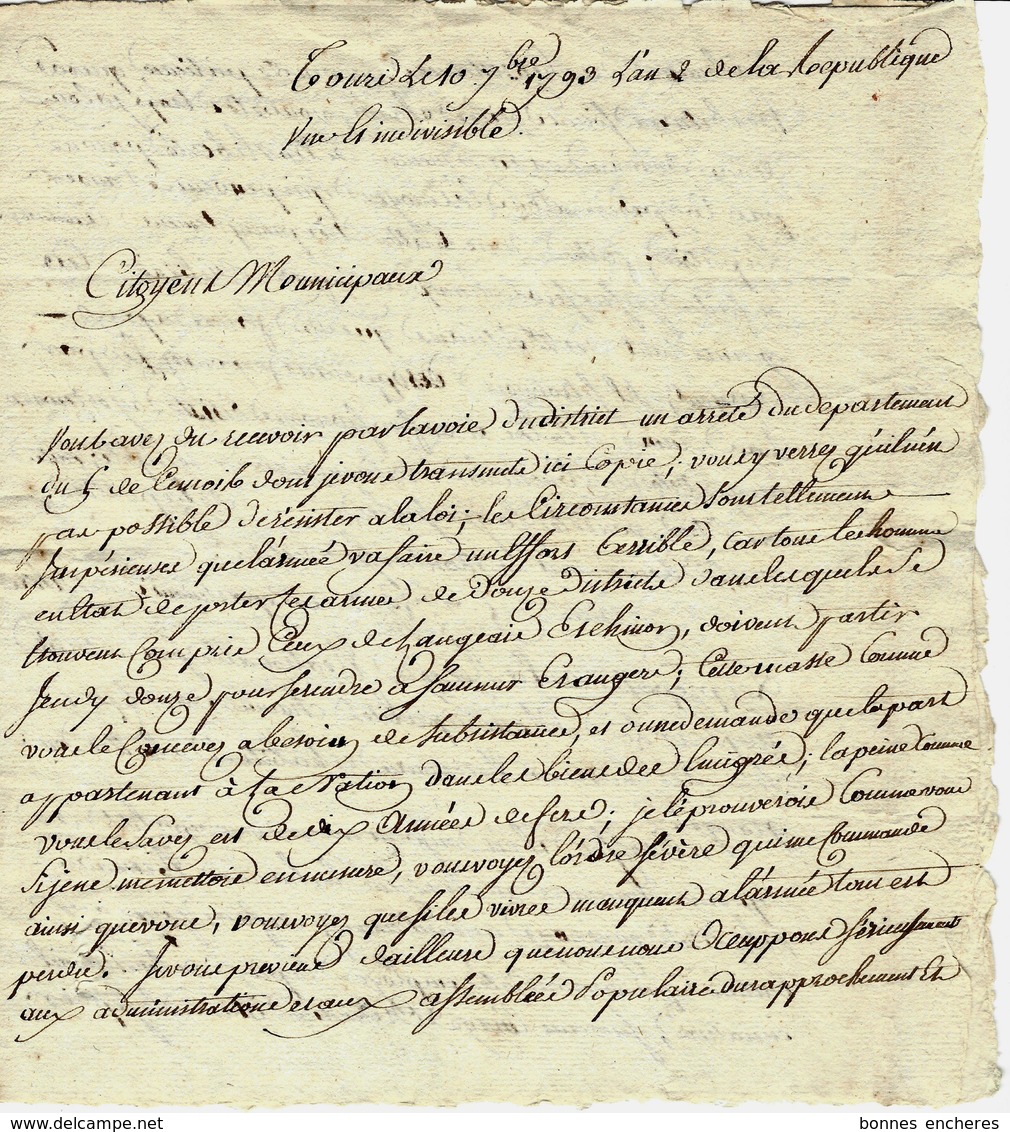 Tours Le 10 7bre 1793 L'an 2 de la Republique
Une Et indivisible.
Citoyens Municipaux
Vous avez du recevoir par la voie du district un arrêté du departement
du 5 de Ce mois dont je vous transmets ici Copie; vous y verrez qu'il n'est
pas possible de résister a la loi; les Circonstances Sont tellement
Impérieuses que l'armée va faire un Effort terrible, Car tous les hommes
en Etat de porter les armes de Douze Districts dans les quels Se
trouvent Compris Ceux de Langeais Et Chinon, doivent partir
Jeudy douze pour se rendre a Saumur Et angers; Cette masse Comme
vous le Concevez a besoin de Subsistances, et on ne demande que la part
appartenant à la Nation dans les biens des Emigrés; la peine Comme
vous le Savez est de dix Années de fers; je l'éprouverois Comme vous
Si je ne me mettois en mesure, vous voyez l'ordre sévère qui me Commande
ainsi qu'a vous, vous voyez que si les vivres manquent a l'armée tout est
perdu. Je vous previens d'ailleurs que nous nous Occuppons Sérieusement
aux administrations et aux assemblées Populaires du rapprochement Et
bonnes encheres